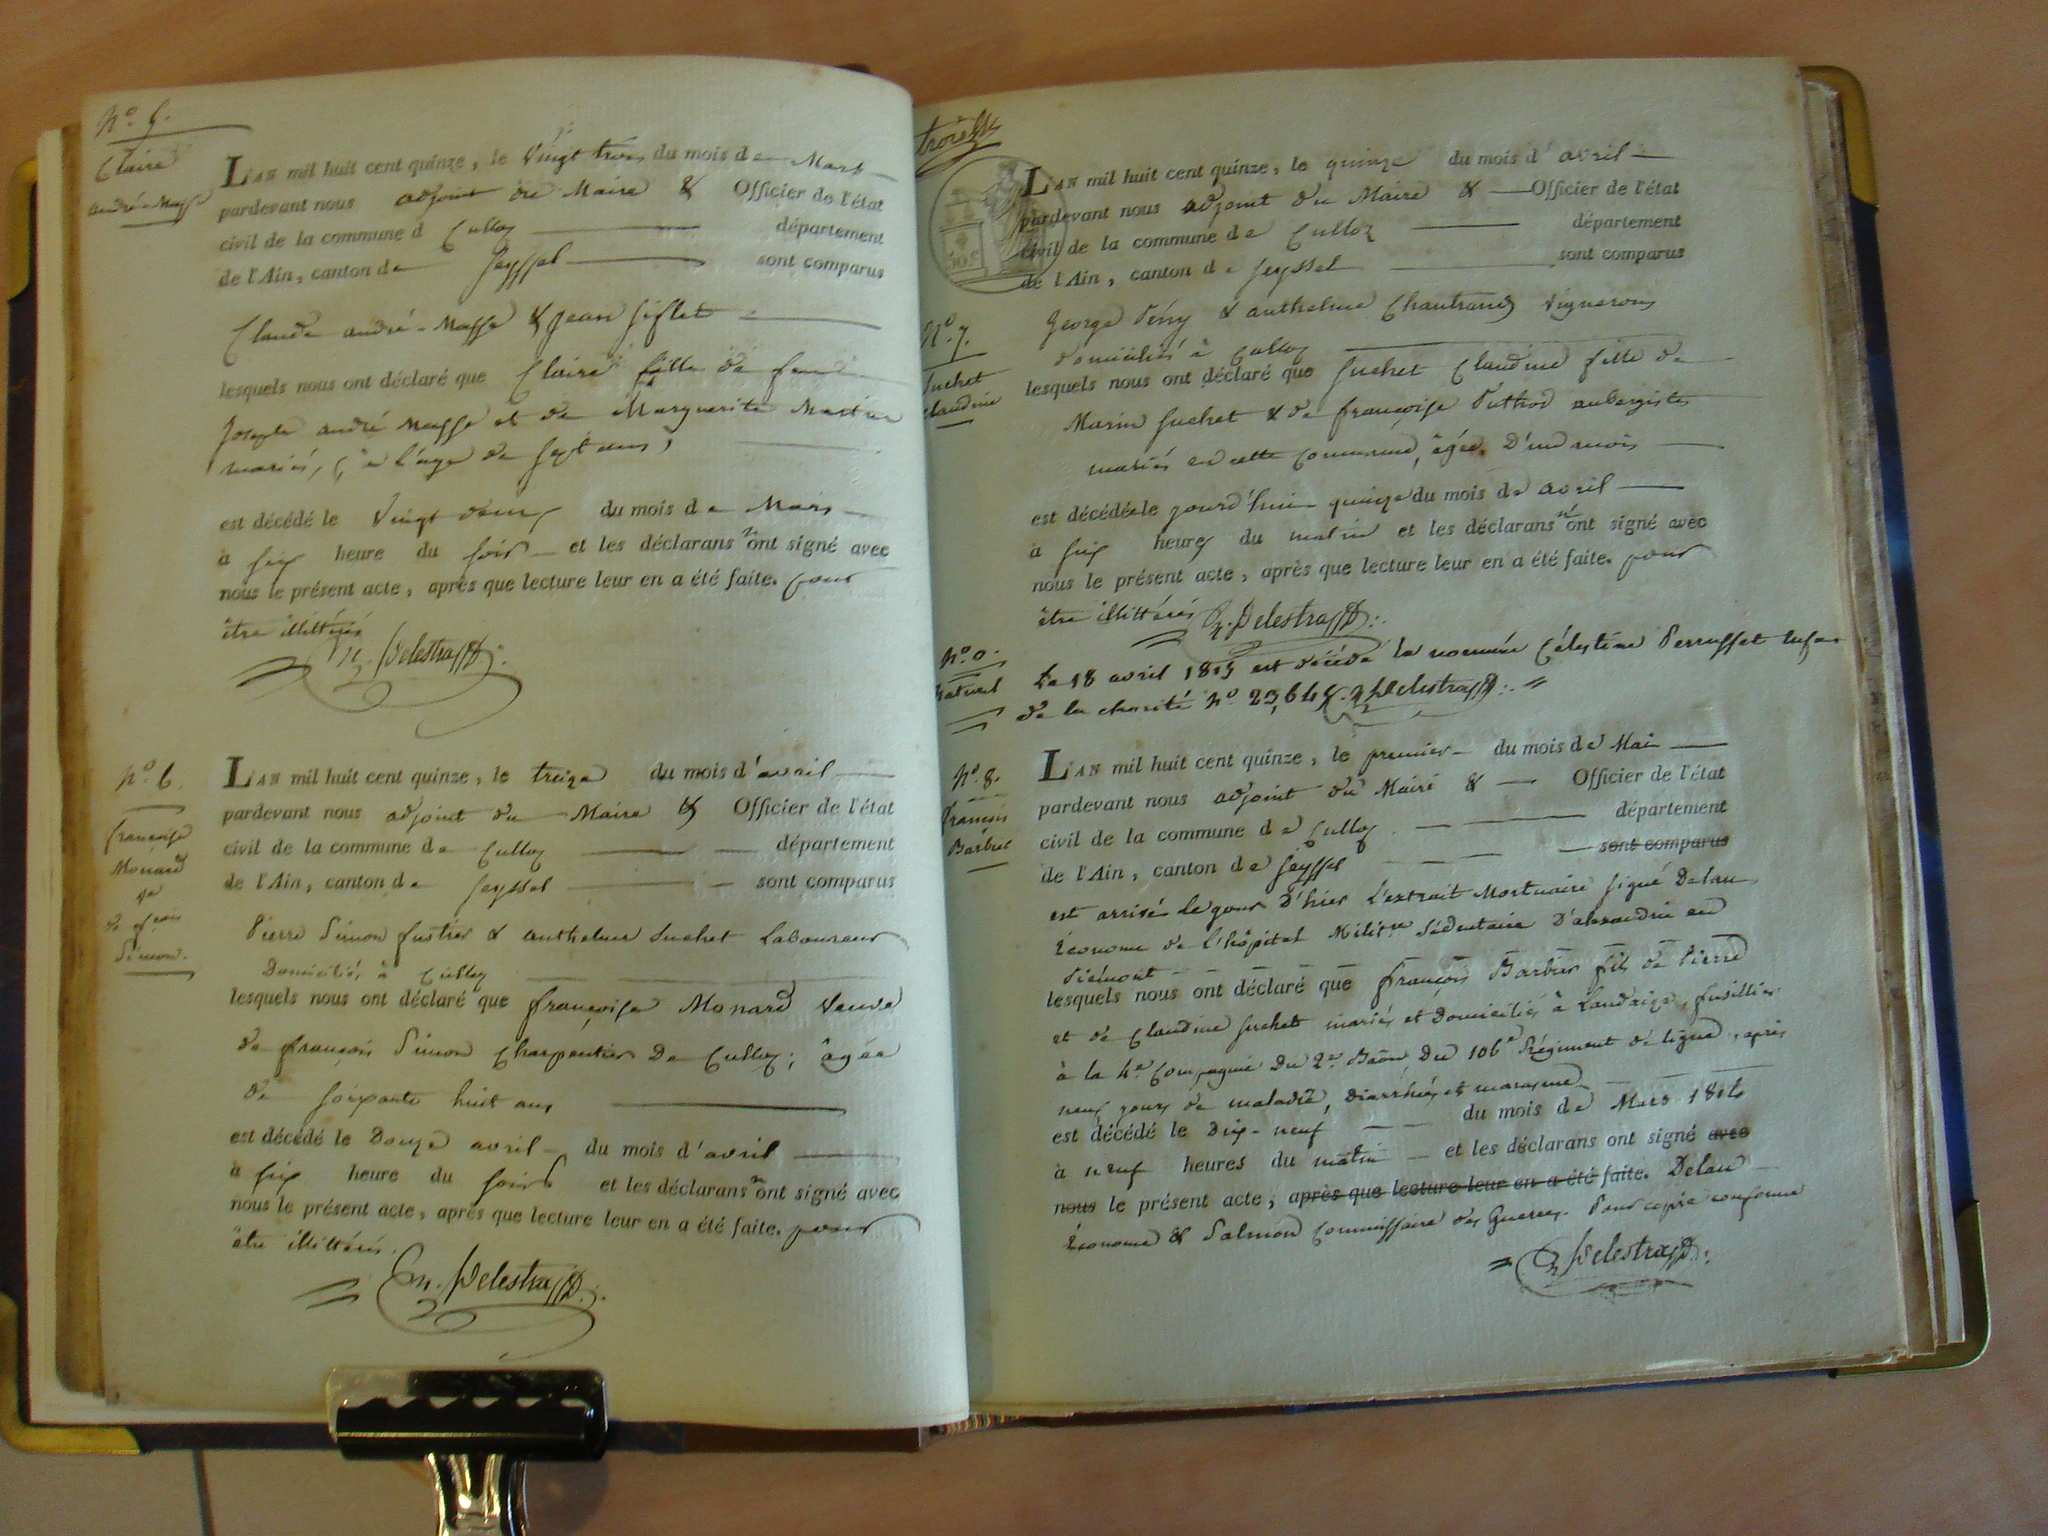 N° 5.
Claire
andré-Masse
L'AN mil huit cent quinze, le Vingt trois du mois de Mars
pardevant nous adjoint du Maire & Officier de l'état
civil de la commune d Culloz département
de l'Ain, canton de Seyssel sont comparus
Claude andré-Masse & Jean Siflet
lesquels nous ont déclaré que Claire fille de feu
Joseph andré Masse et de Marguerite
mariés, à l'age de sept ans,
est décédé le Vingt deux du mois de Mars
à six heure du soir et les déclarans n'ont signé avec
nous le présent acte, après que lecture leur en a été faite. pour
être illittérés
Delestra
N° 6.
françoise
Monard
ve
de fçois
Simon.
L'AN mil huit cent quinze, le treize du mois d'avril
pardevant nous adjoint du Maire & Officier de l'état
civil de la commune de Culloz département
de l'Ain, canton de Seyssel sont comparus
Pierre Simon fustier & anthelme Suchet Laboureur
Domiciliés à Culloz
lesquels nous ont déclaré que françoise Monard Veuve
de françois Simon Charpentier De Culloz, âgée
de soixante huit ans
est décédé le Douze avril du mois d'avril
à six heure du soir et les déclarans n'ont signé avec
nous le présent acte, après que lecture leur en a été faite. pour
être illittérés.
Delestra
troisè
50 c
L'AN mil huit cent quinze, le quinze du mois d'avril
pardevant nous adjoint du Maire & Officier de l'état
civil de la commune de Culloz département
de l'Ain, canton de Seyssel sont comparus
N° 7.
Suchet
claudine
George Pény & anthelme Chautrand Vignerons
domiciliés à Culloz
lesquels nous ont déclaré que Suchet Claudine fille de
Marin Suchet & de françoise Puthod aubergistes
mariés en cette commune, âgée D'un mois
est décédée le jourd'hui quinze du mois de avril
à six heures du matin et les déclarans n'ont signé avec
nous le présent acte, après que lecture leur en a été faite. pour
être illittérés Delestra
N° 0.
naturel
Le 18 avril 1815 est décédé la nommée Célestine Perrusset enfan
de la charité N° 23,645. Delestra
N° 8.
françois
Barbier
L'AN mil huit cent quinze, le premier du mois de Mai
pardevant nous adjoint du Maire & Officier de l'état
civil de la commune de Culloz département
de l'Ain, canton de Seyssel sont comparus
est arrivé le jour D'hier L'extrait Mortuaire signé Delau
Econome de l'hôpital Militre Sédentaire D'alexandrie en
Piémont
lesquels nous ont déclaré que françois Barbier fils de Pierre
et de Claudine Suchet mariés et Domiciliés à Landaize, fusillier
à la 4e Compagnie Du 2e Baôn Du 106e Régiment de ligne, après
neuf jours de maladie, Diarrhée et marasme
est décédé le Dix-neuf du mois de Mars 1814
à neuf heures du matin et les déclarans ont signé avec
nous le présent acte, après que lecture leur en a été faite. Delau
Econome & Salmon Commissaire des Guerres. Pour copie conforme
Delestra